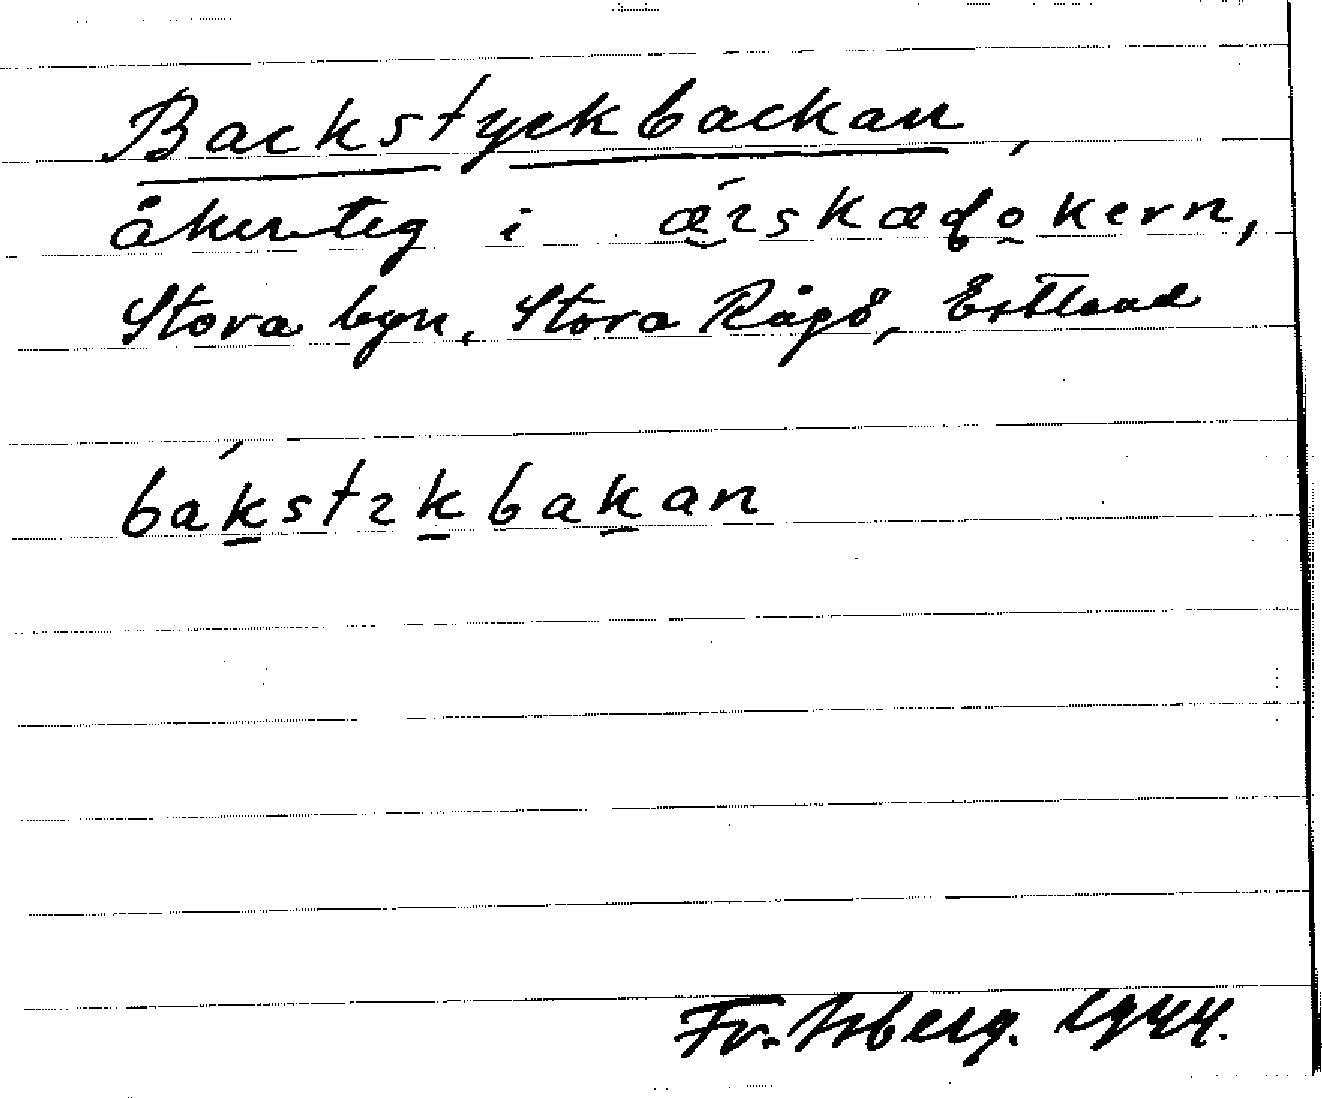 Backstyckbackan,
åkerteg i
Stora byn, Stora Rågö, Estland
bákstɩkbakan
Fr. Isberg. 1944.